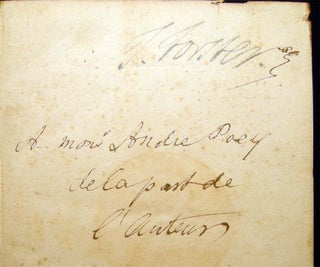 T. Forster
A monr Andre Poey
de la part de
l'Auteur